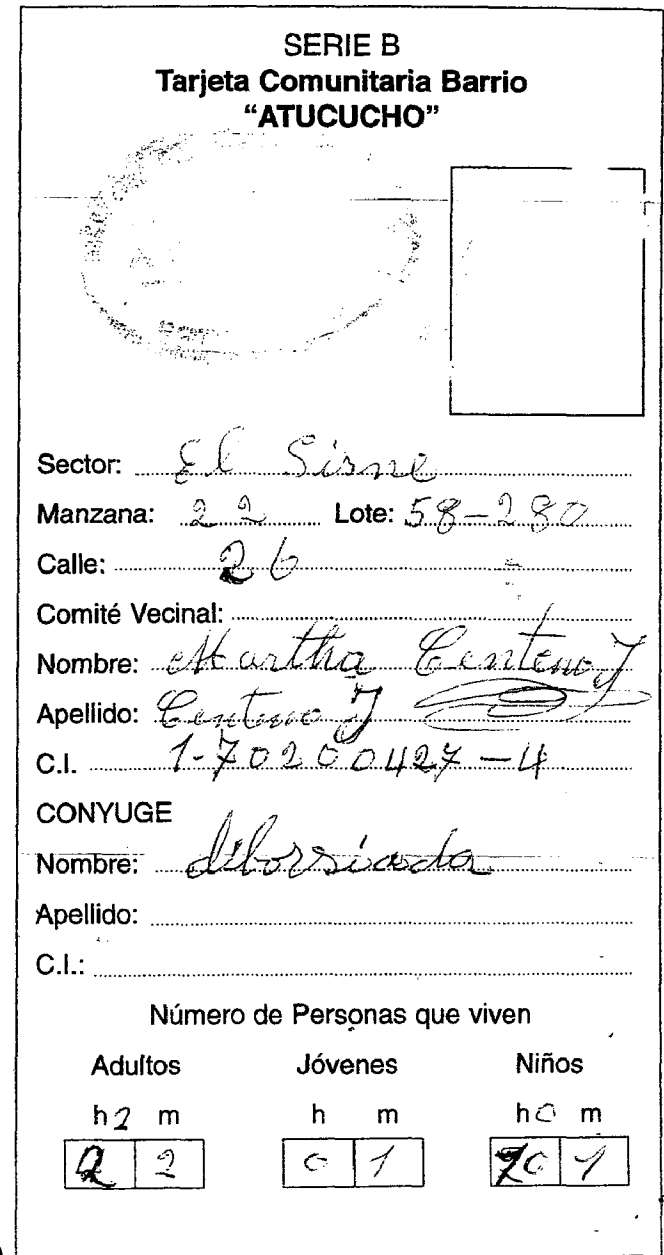 SERIE B
Tarjeta Comunitaria Barrio
"ATUCUCHO"
Sector: El Sisne
Manzana: 22 Lote: 58-280
Calle: 26
Comité Vecinal:
Nombre: Martha Centeno J
Apellido: Centeno J
C.I. 1-70200427-4
CONYUGE
Nombre: diborsiada
Apellido:
C.I.:
Número de Personas que viven
Adultos Jóvenes Niños
h 2 m h m h 0 m
2 2 0 1 0 1